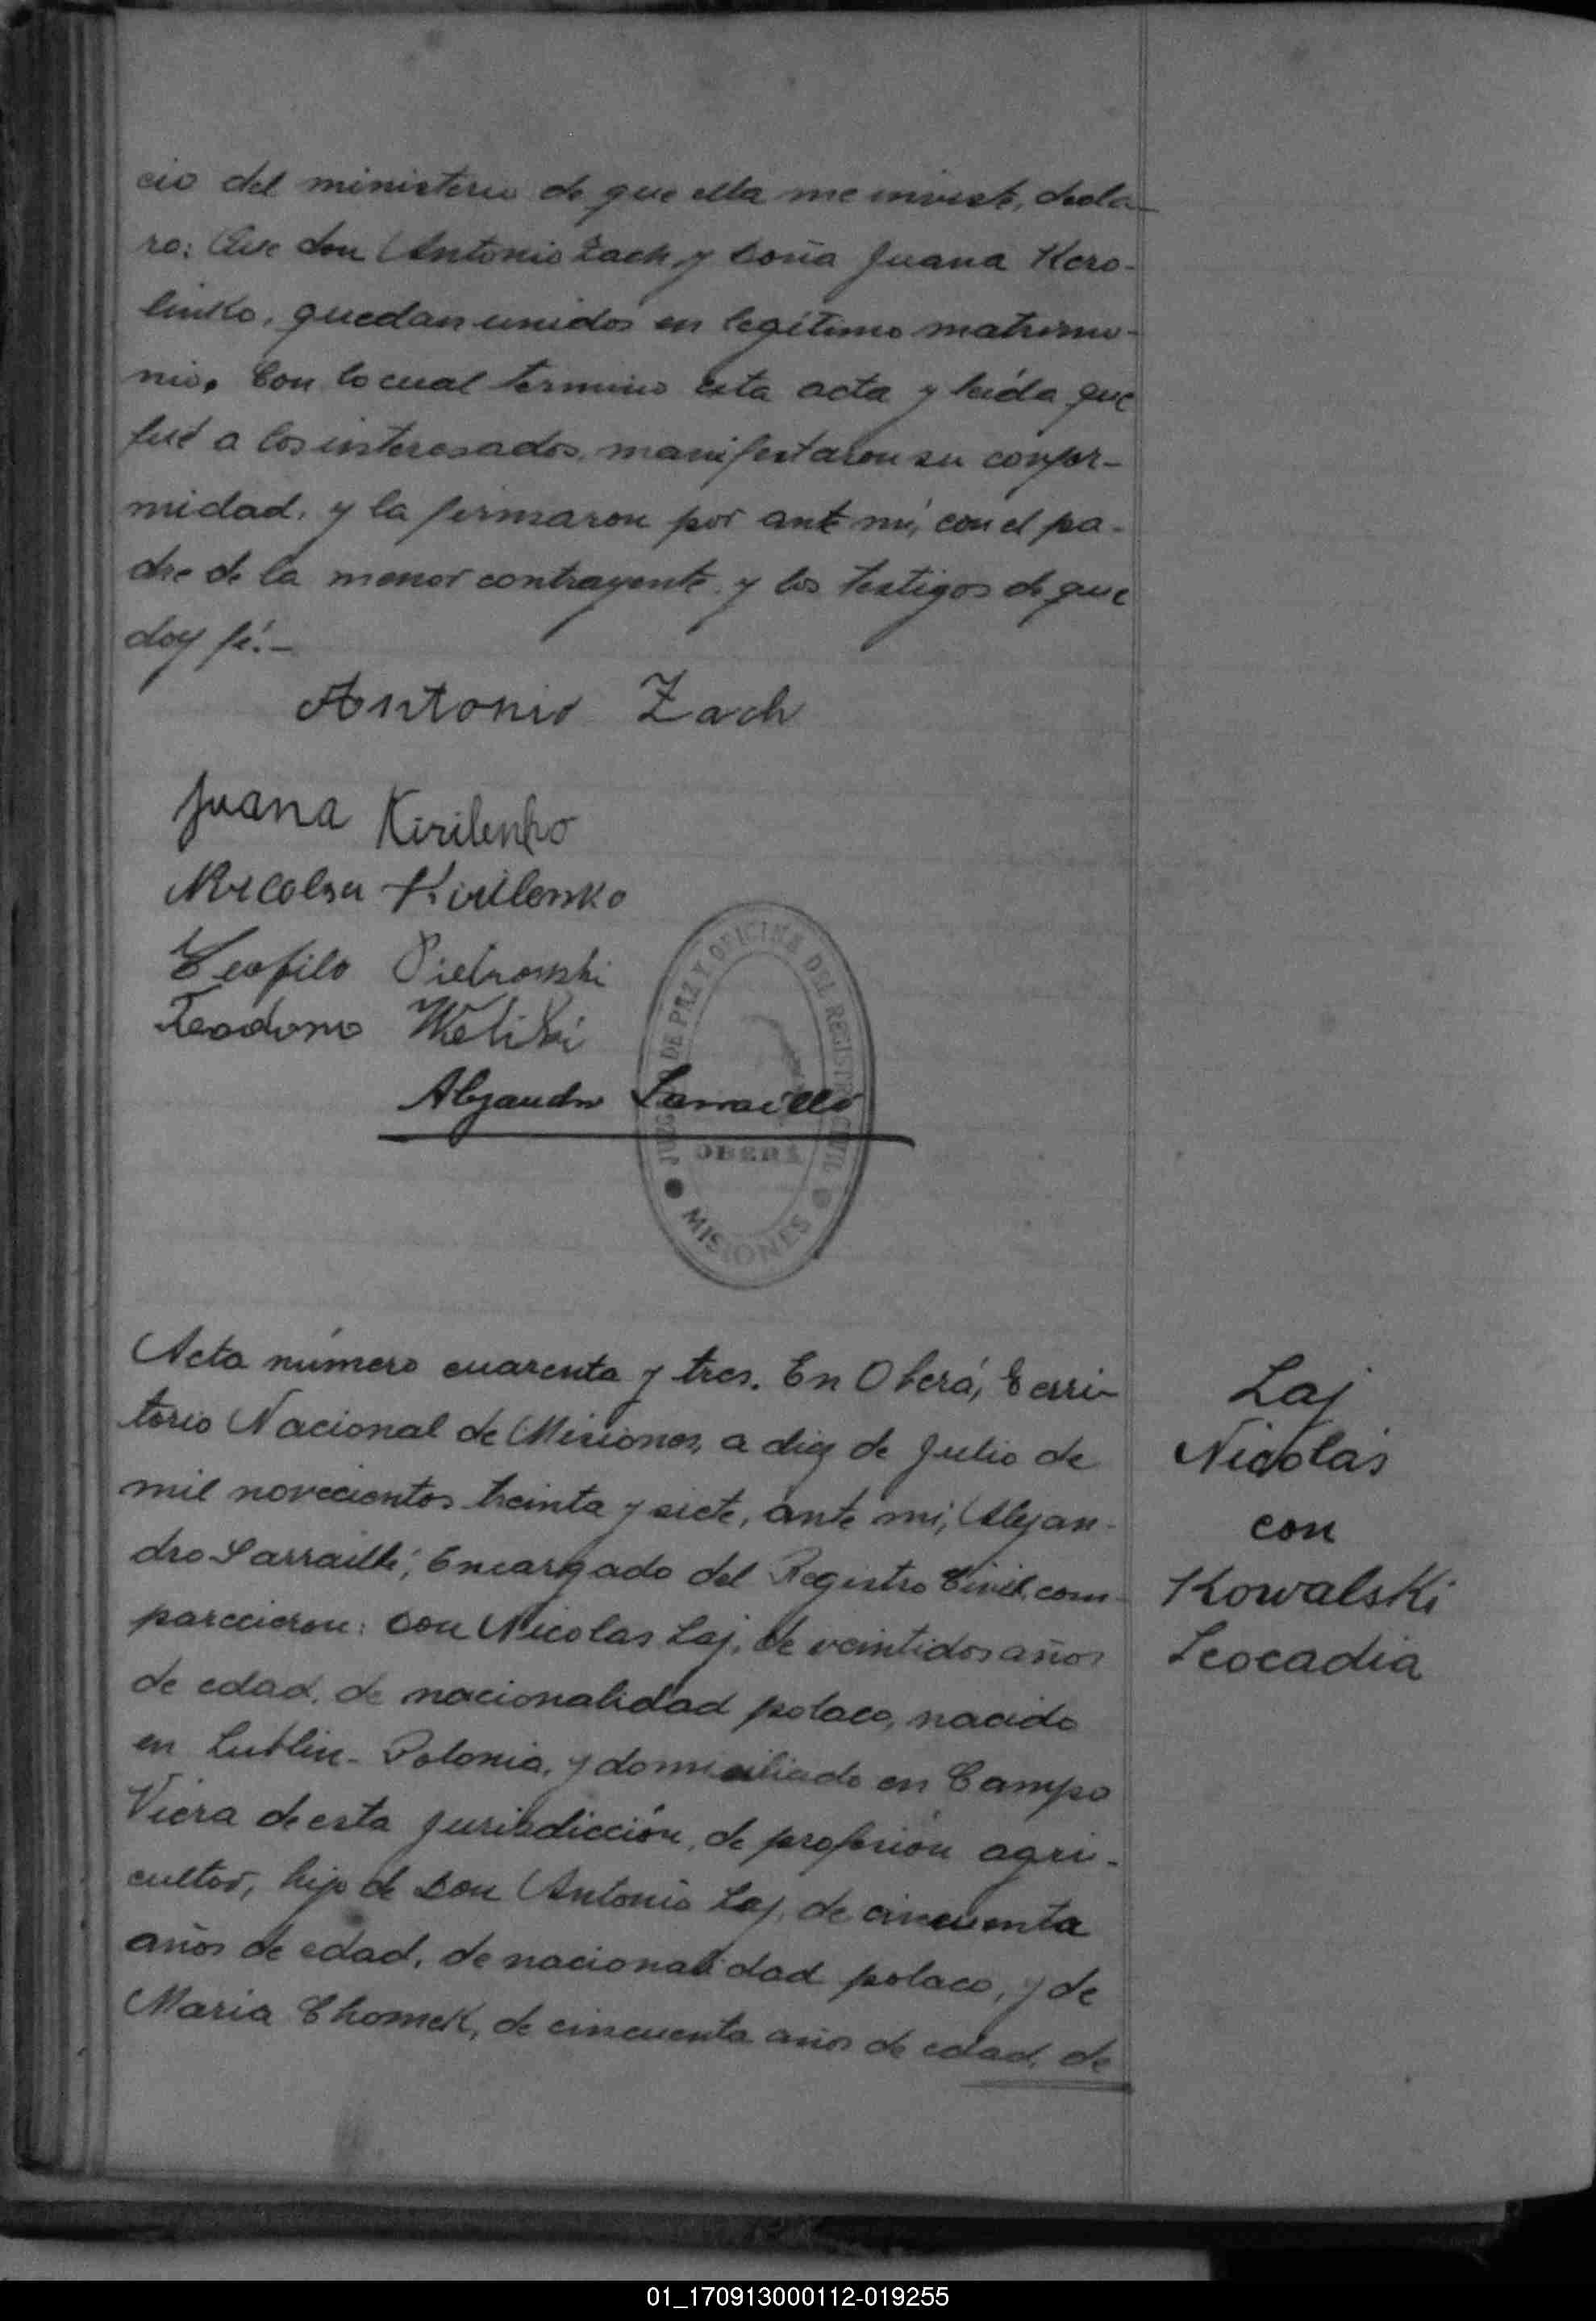 cio del ministerio de que ella me inviste, decla-
ro: Que don Antonio Zach y Doña Juana Kero-
linko, quedan unidos en legítimo matrimo-
nio. Con lo cual termino esta acta y leída que
fué a los interesados, manifestaron su confor-
midad, y la firmaron por ante mí, con el pa-
dre de la menor contrayente y los testigos de que
doy fé.-
Antonio Zach
Juana Kirilenko
Kirilenko
Teofilo Pietrowski
Teodoro
Alejandro Sarraillé
JUZGADO DE PAZ Y OFICINA DEL REGISTRO CIVIL
OBERÁ
MISIONES
Acta número cuarenta y tres. En Oberá, Terri-
torio Nacional de Misiones, a diez de Julio de
mil novecientos treinta y siete, ante mí, Alejan-
dro Sarraillé, Encargado del Registro Civil, com-
parecieron: Don Nicolas Laj, de veintidos años
de edad, de nacionalidad polaco, nacido
en Lublin-Polonia, y domiciliado en Campo
Viera de esta jurisdicción, de profesión agri-
cultor, hijo de Don Antonio Laj, de cincuenta
años de edad, de nacionalidad polaco, y de
Maria Chomek, de cincuenta años de edad, de
Laj
Nicolás
con
Kowalski
Leocadia
01_170913000112-019255